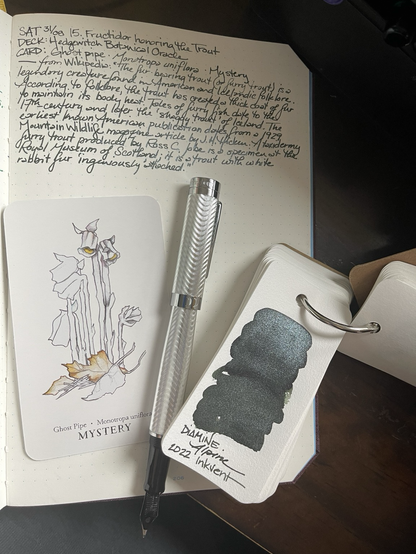 SAT 31/08 15. Fructidor honoring the Trout
DECK: Hedgewitch Botanical Oracle
CARD: Ghost pipe · Monotropa uniflora · Mystery
— from Wikipedia: "The fur-bearing trout (or furry trout) is a
legendary creature found in American and Icelandic folklore.
According to folklore, the trout has created a thick coat of fur
to maintain its body heat. Tales of furry fish date to the
17th century and later the "shaggy trout" of Iceland. The
earliest known American publication dates from a 1929
Mountain Wildlife magazine article by J.H. Hicken. A taxidermy
furry trout produced by Ross C. Jobe is a specimen at the
Royal Museum of Scotland; it is a trout with white
rabbit fur ingeniously attached."
Ghost Pipe • Monotropa uniflora
MYSTERY
DIAMINE
Alpine
2022 Inkvent